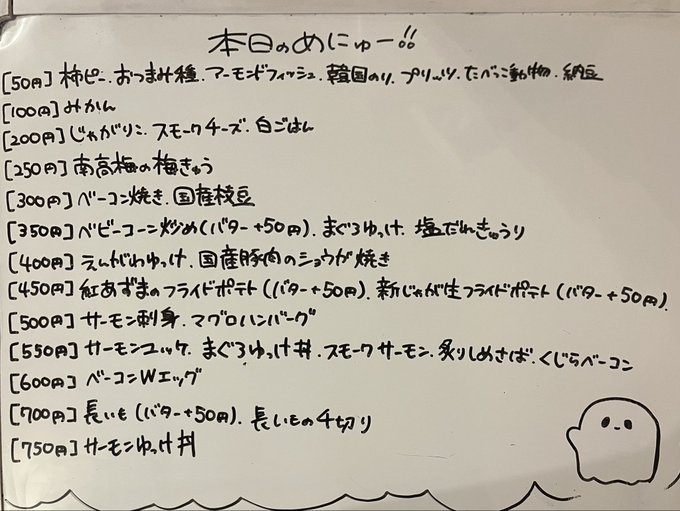 本日のめにゅー!!
[50円] 柿ピー.おつまみ種.アーモンドフィッシュ.韓国のり.プリッツ.たべっこ動物.納豆
[100円] みかん
[200円] じゃがりこ.スモークチーズ.白ごはん
[250円] 南高梅の梅きゅう
[300円] ベーコン焼き.国産枝豆
[350円] ベビーコーン炒め(バター+50円).まぐろゆっけ.塩だれきゅうり
[400円] えんがわゆっけ.国産豚肉のショウガ焼き
[450円] 紅あずまのフライドポテト(バター+50円).新じゃが生フライドポテト(バター+50円).
[500円] サーモン刺身.マグロハンバーグ
[550円] サーモンユッケ.まぐろゆっけ丼.スモークサーモン.炙りしめさば.くじらベーコン
[600円] ベーコンWエッグ
[700円] 長いも(バター+50円).長いもの千切り
[750円] サーモンゆっけ丼